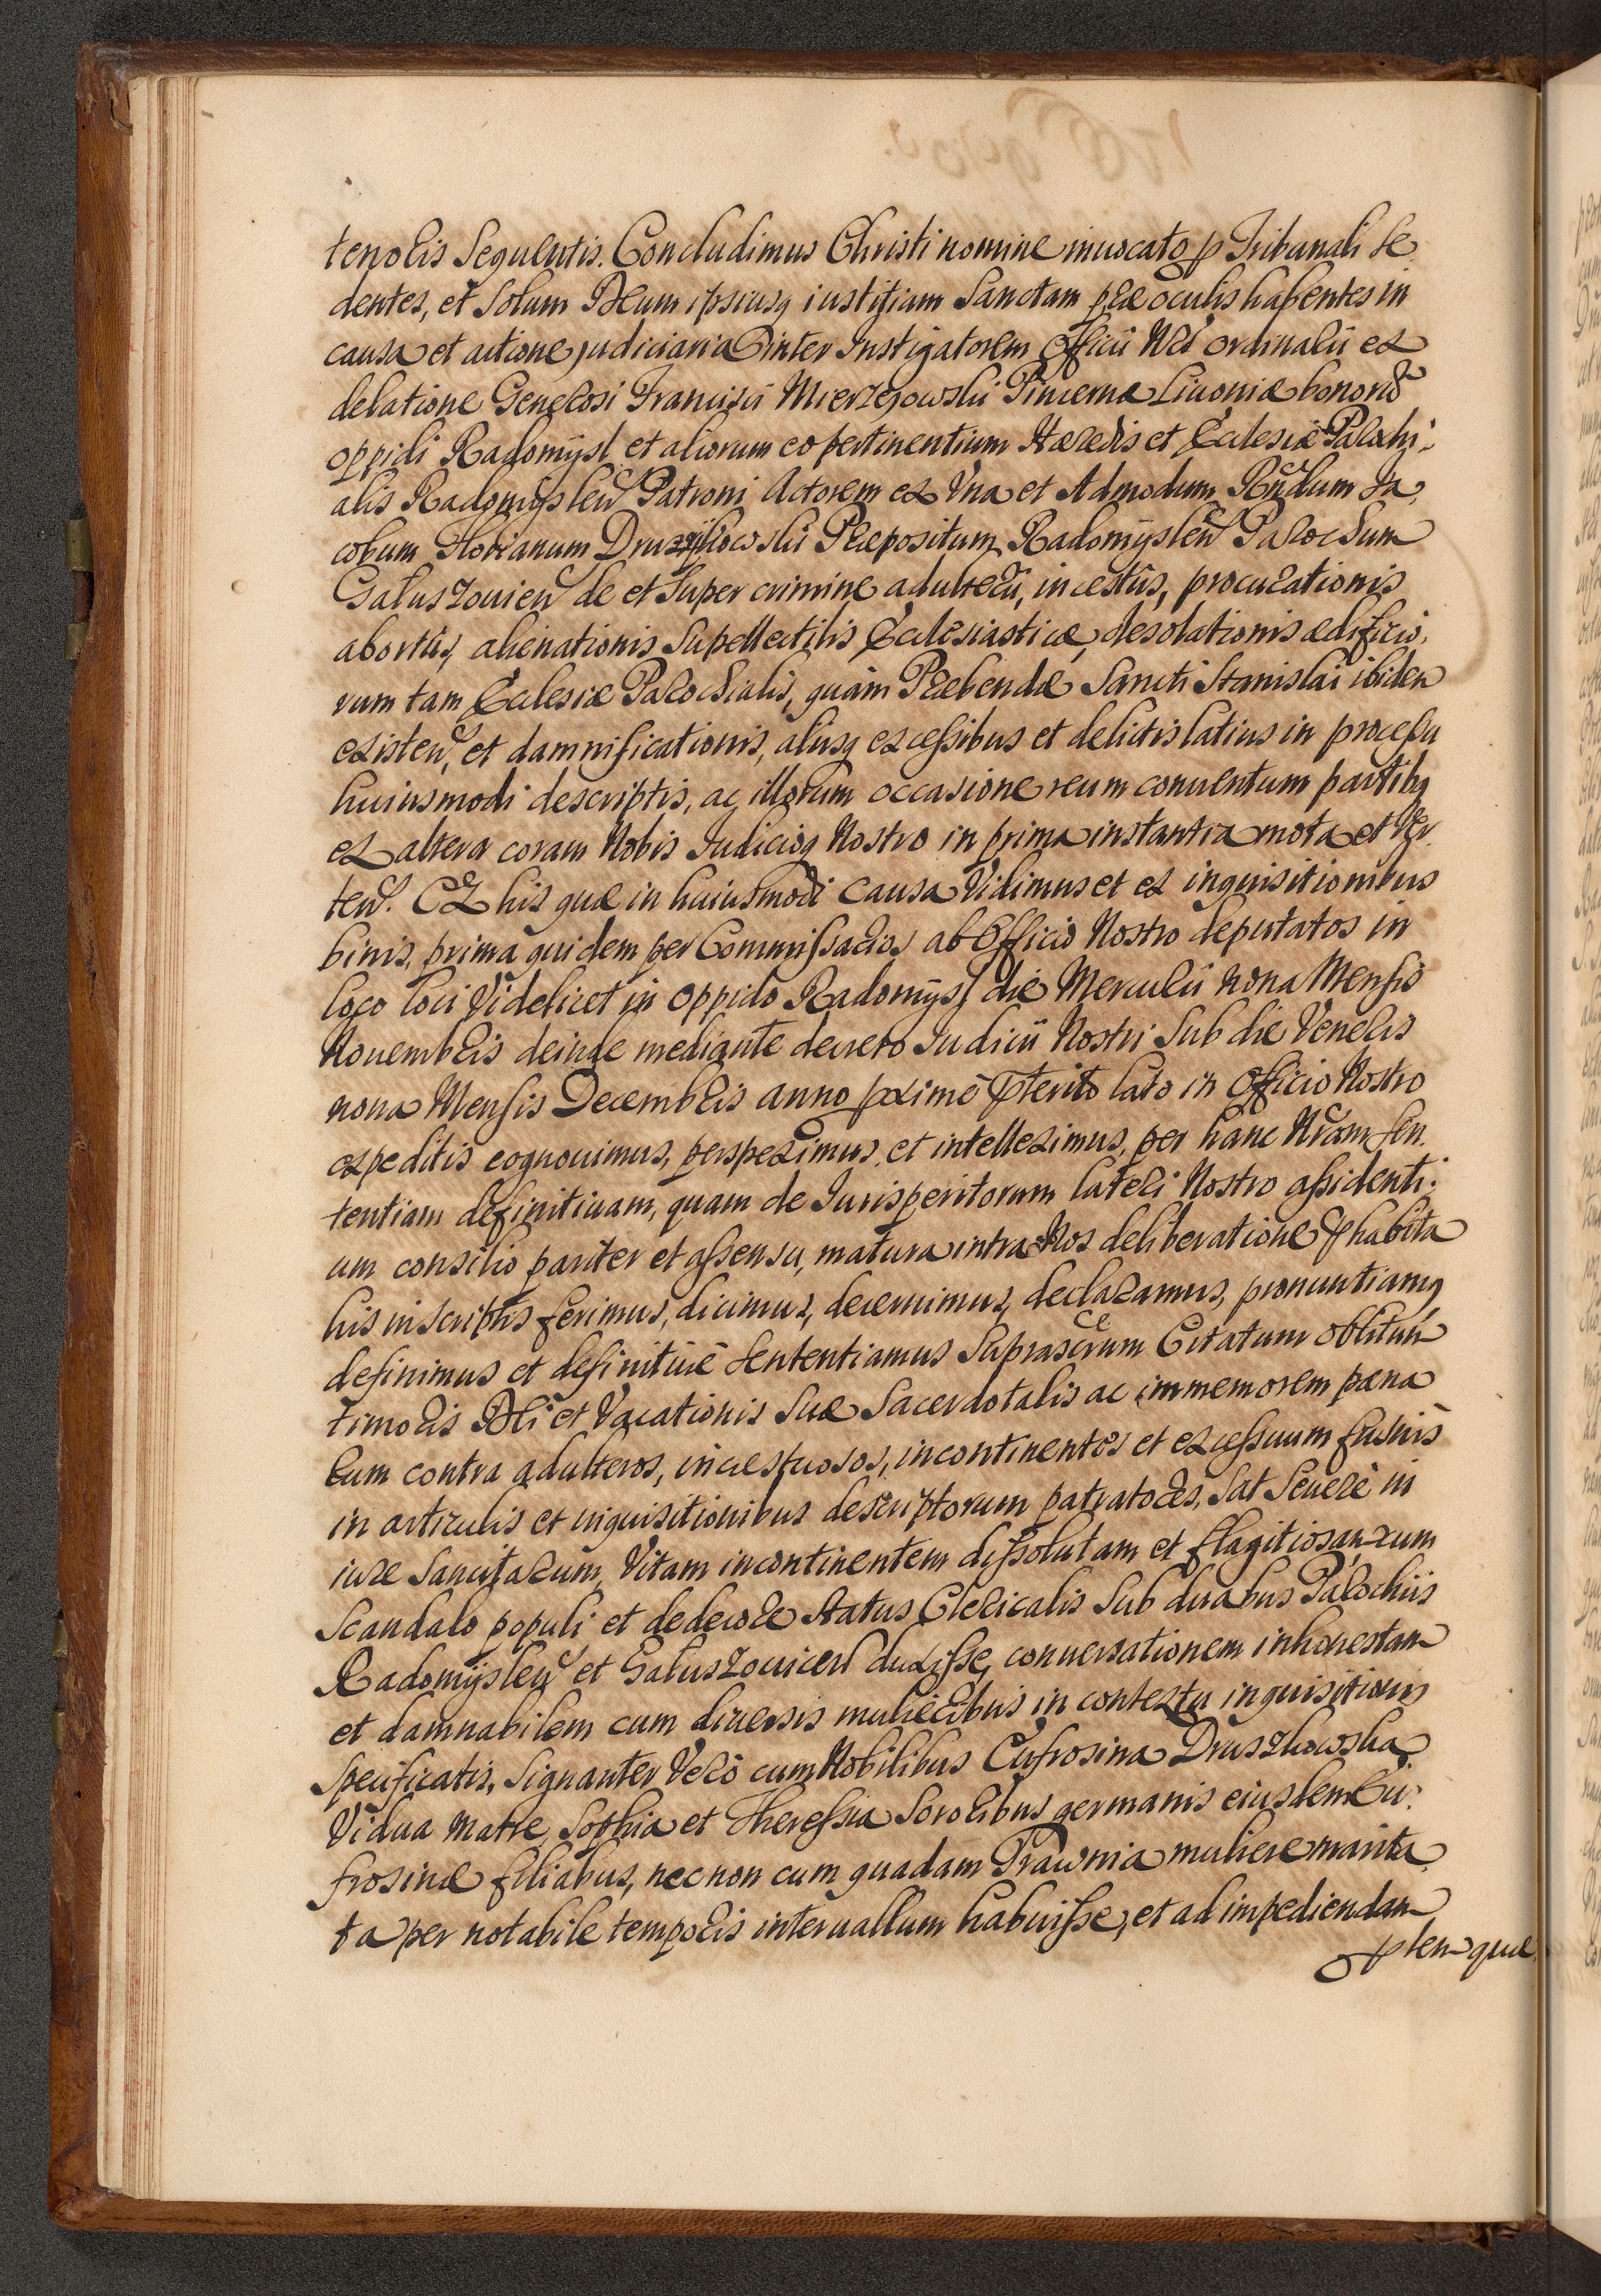 tenoris sequentis. Concludimus Christi nomine inuocato p Tribunali se
dentes, et solum Deum ipsiusq iustitiam Sanctam præ oculis habentes in
causa et actione judiciaria inter Instigatorem Officii Nri ordinarii ex
delatione Generosi Francisci Mierzejowski Pincernæ Liuoniæ bonorũ
oppidi Radomÿsl et aliorum eo pertinentium Hæredis et Ecclesiæ Parochi,
alis Radomÿsleñ Patroni Actorem ex Vna et Admodum Rñdum Ja,
cobum Florianum Druzÿkowski Præpositum Radomÿsleñ Parochum
Galuszouieñ de et super crimine adulterii, incestûs, procurationis
abortûs, alienationis supellectilis Ecclesiasticæ, desolationis ædificio,
rum tam Ecclesiæ Parochialis, quàm Præbendæ Sancti Stanislai ibidem
existeñ, et damnificationis, aliisq excessibus et delictis latius in processu
huiusmodi descriptis, ac illorum occasione reum conuentum partibq
ex altera coram Nobis Iudicioq Nostro in prima instantia mota et Ver
teñ. Ex his quæ in huiusmodi causa Vidimus et ex inquisitionibus
binis, prima quidem per Commissarios ab Officio Nostro deputatos in
loco loci Videlicet in oppido Radomÿsl die Mercurii nona Mensis
Nouembris deinde mediante decreto Iudicii Nostri sub die Veneris
nona Mensis Decembris anno pximè pterito lato in Officio Nostro
expeditis cognouimus, perspeximus, et intelleximus, per hanc Nram sen
tentiam definitiuam, quam de Iurisperitorum lateri Nostro assidenti,
um consilio pariter et assensu, matura intra Nos deliberatione phabita
his in scriptis ferimus, dicimus, decernimus, declaramus, pronuntiamq
definimus et definitiuè sententiamus suprascrum Citatum oblitum
timoris Dei et Vocationis suæ Sacerdotalis ac immemorem pæna
rum contra adulteros, incestuosos, incontinentes et excessuum fusius
in articulis et inquisitionibus descriptorum patratores, sat seuerè in
iure sancitarum, Vitam incontinentem dissolutam et flagitiosam cum
scandalo populi et dedecore status Clericalis sub duabus Parochiis
Radomÿsleñ et Galuszouiceñ duxisse, conuersationem inhonestam
et damnabilem cum diuersis mulieribus in contextu inquisitionis
specificatis, signanter Verò cum Nobilibus Eufrosina Druszkowska
Vidua matre, Sophia et Theressia sororibus germanis eiusdem Eu,
frosinæ filiabus, nec non cum quadam Prawnia muliere marita
ta per notabile temporis interuallum habuisse, et ad impediendam
plem que